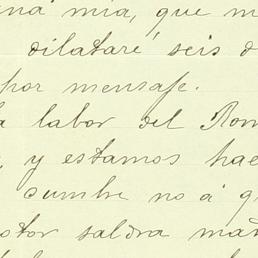 mia, que m
dilataré seis d
por mensaje.
a labor del Rom
, y estamos hac
cumbre no á q
stor saldra mañ